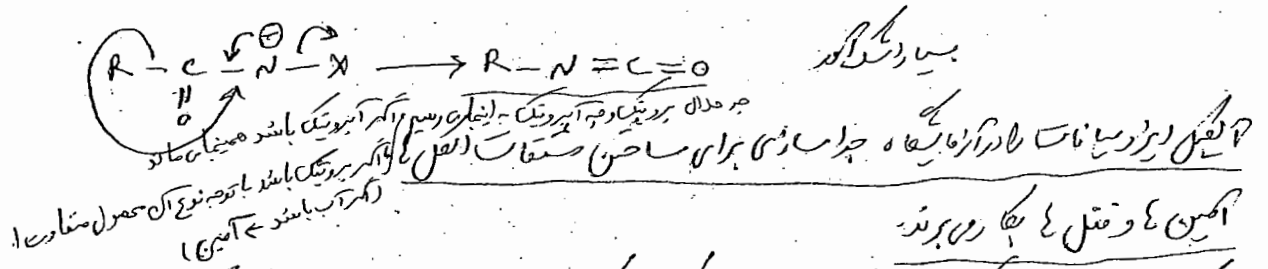 R - C - N⊖ - X ⟶ R - N = C = O
||
O
بسیار اشک آور
چه حلال پروتیک و چه آپروتیک به اینجا می رسیم، اگر آپروتیک باشد همینجا می ماند
و اگر پروتیک باشد با توجه نوع آن محصول متفاوت است
(اگر آب باشد → آمین)
آلکیل ایزوسیانات را در آزمایشگاه جداسازی برای ساختن مشتقات الکل ها
آمین ها و فنل ها بکار می برند.